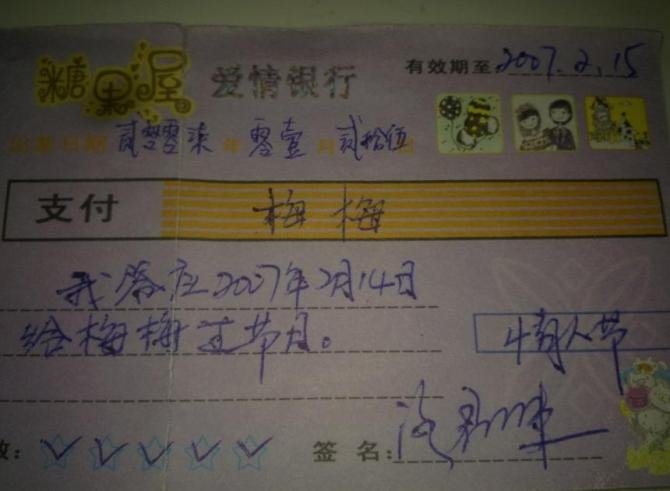 糖果屋 爱情银行 有效期至 2007.2.15
出票日期 贰零零柒 年 零壹 月 贰拾伍 日
支付 梅梅
我答应2007年2月14日
给梅梅过节日。
情人节
签名: